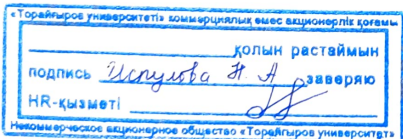 «Торайғыров университеті» коммерциялық емес акционерлік қоғамы
қолын растаймын
подпись Испулова Н А заверяю
HR-қызметі
Некоммерческое акционерное общество «Торайғыров университет»